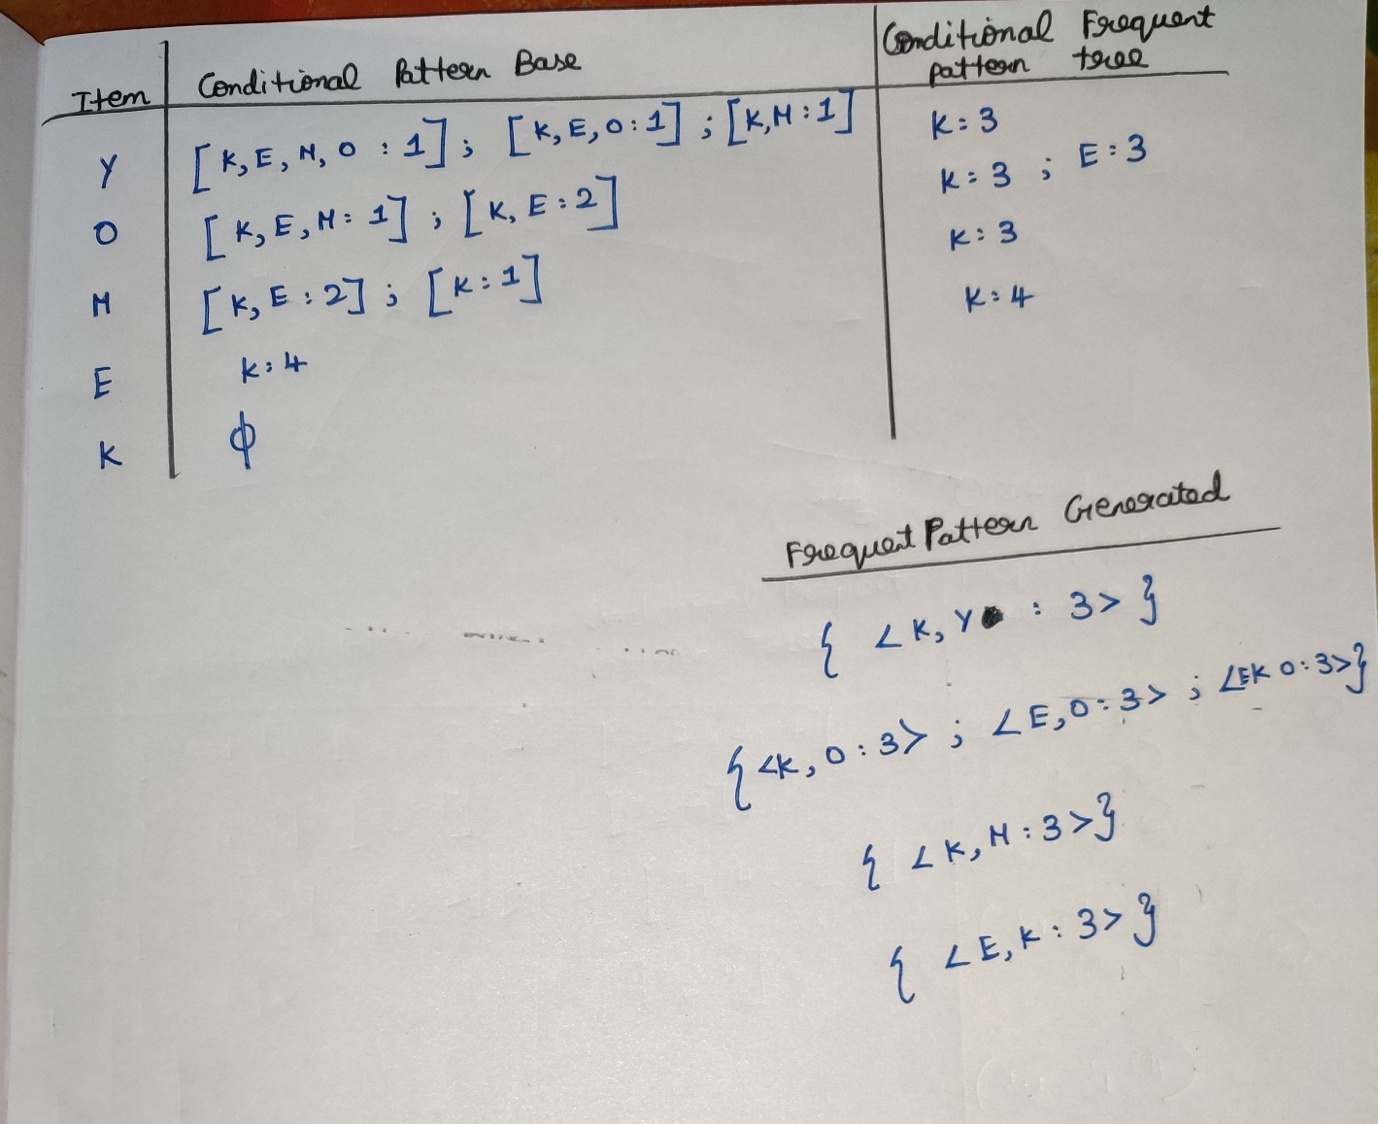 Item Conditional Pattern Base Conditional Frequent pattern tree
Y [K, E, M, O : 1]; [K, E, O : 1]; [K, M : 1] K = 3
O [K, E, M : 1]; [K, E : 2] K = 3 ; E : 3
M [K, E : 2]; [K : 1] K : 3
E K : 4 K : 4
K ϕ
Frequent Pattern Generated
{ <K, Y : 3> }
{<K, O : 3> ; <E, O : 3> ; <EK O : 3>}
{ <K, M : 3>}
{ <E, K : 3> }